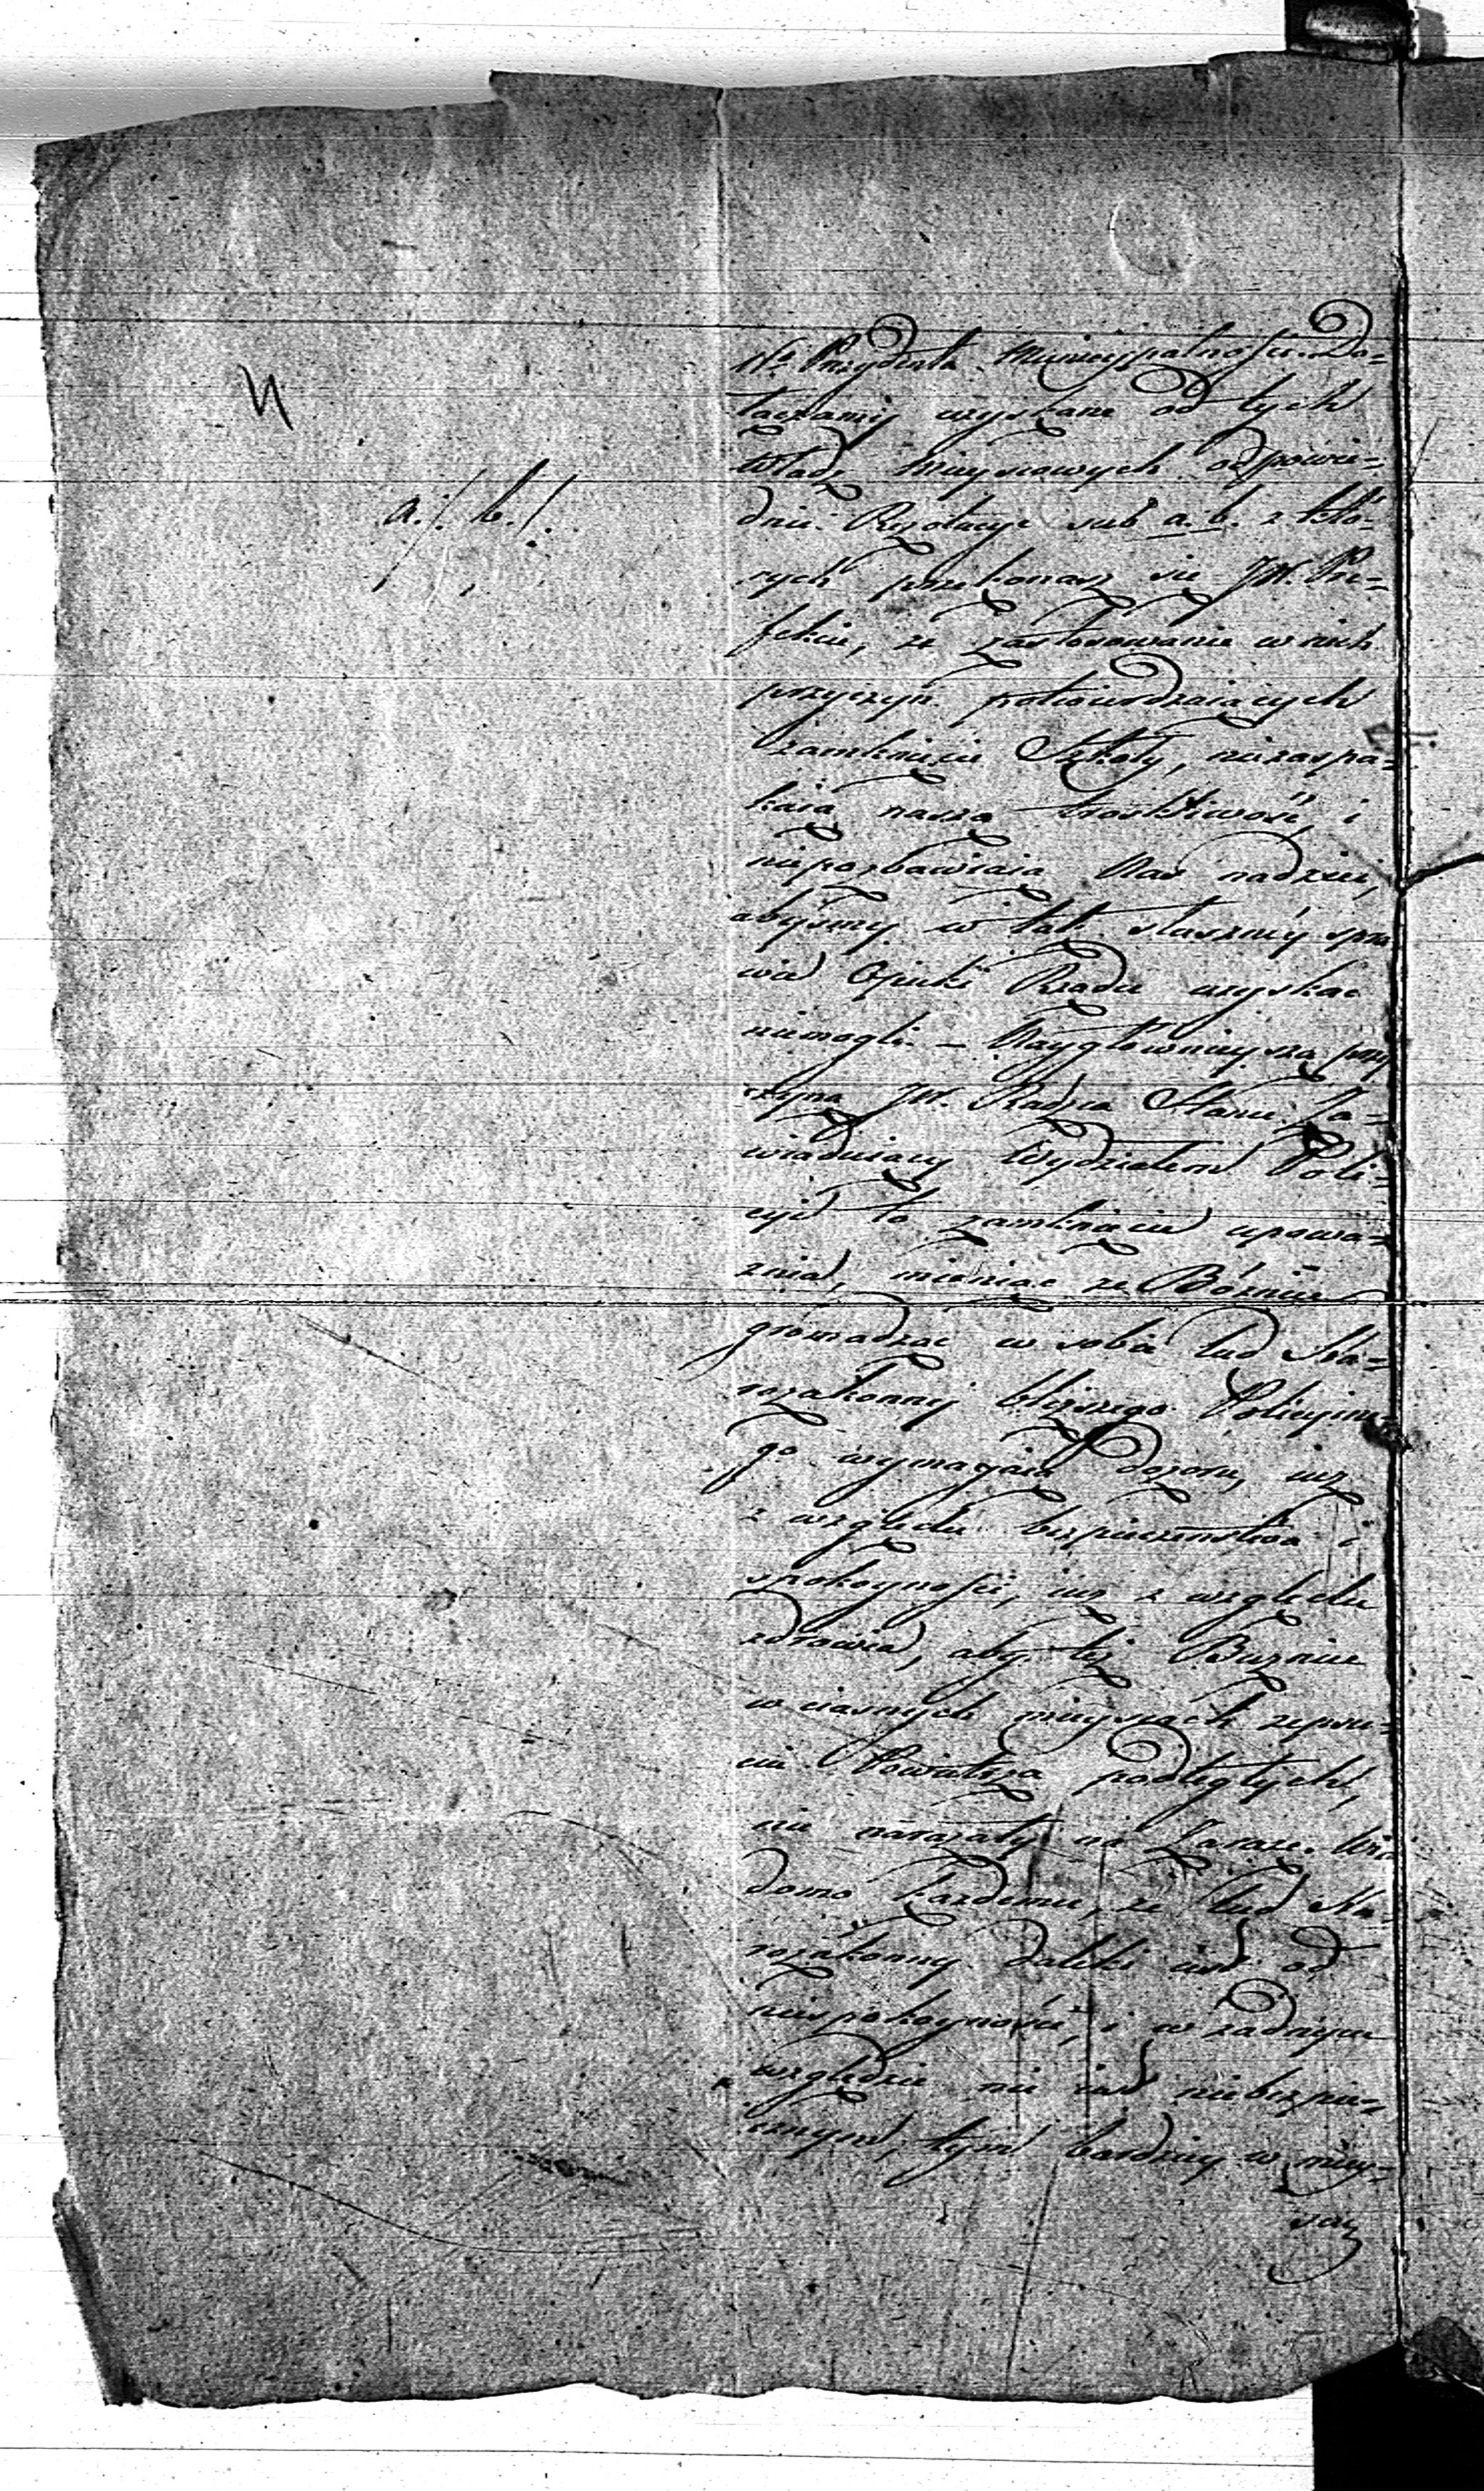 a./. b./.
Wo Prezydenta Municypalności. Do-
łączamy uzyskane od tych
Władz Mieyscowych odpowie-
dnie Rezolucye sub a. b. z któ-
rych przekonasz się JW. Pre-
fekcie, że zastosowanie w nich
przyczyn potwierdzaiących
zamknięcie Szkoły, niezaspa-
kaia naszą troskliwość, i
niepozbawiaia Nas nadziei,
abyśmy w tak słuszney spra
wie Opieki Rządu uzyskac
niemogli. – Naygłownieyszą przy
czyną JW. Radca Stanu Za-
wiaduiący Wydziałem Poli-
cyi to zamknięcie upowa-
żnia, mieniąc że Bóżnice
gromadząc w sobie lud Sta-
rozakonny bliższego Policyine-
go wymagaią dozoru, iuż
z względu bezpieczeństwa i
spokoyności, iuż z względu
zdrowia, aby też Bużnice
w ciasnych mieyscach zepsu-
ciu Powietrza podległych,
nie narażały na Zarazę. Wia
domo każdemu, że lud Sta-
rozakonny daleki iest od
niespokoyności, i w żadnym
względzie nie iest niebezpie-
cznym, tym bardziey w miey-
scu